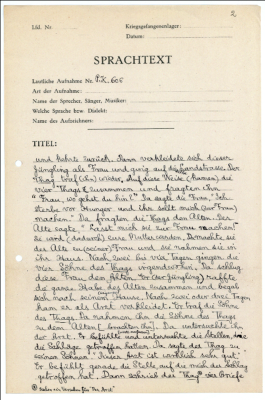 2
Lfd. Nr.
Kriegsgefangenenlager:
Datum:
SPRACHTEXT
Lautliche Aufnahme Nr. P.K. 605
Art der Aufnahme:
Name der Sprecher, Sänger, Musiker:
Welche Sprache bzw. Dialekt:
Name des Aufzeichners:
TITEL:
und kehrte zurück. Dann verkleidete sich dieser
Jüngling als Frau und ging auf die Landstrasse. Der
Thag traf ihn wieder. Auf diese Weise kamen die
vier Thags zusammen und fragten ihn
"Frau, wo gehst du hin?" Da sagte die Frau, "Ich
sterbe vor Hunger und ihr sollt mich zur Frau
machen." Da fragten die Thags den Alten. Der
Alte sagte, "Lasst mich sie zur Frau machen!
Sie wird dadurch eure Mutter werden. Da machte sie
der Alte zu seiner Frau und sie nahmen sie in
ihr Haus. Nach zwei bis vier Tagen gingen die
vier Söhne des Thags irgendwohin. Da schlug
diese Frau den Alten, raffte
die ganze Habe des Alten zusammen und begab
sich nach seinem Hause. Nach zwei oder drei Tagen
kam er als Arzt verkleidet. Er traf die Söhne
des Thags. Da nahmen ihn die Söhne des Thags
zu dem Alten. Da untersuchte ihn
der Arzt. Er befühlte und untersuchte die Stellen, wo
die Schläge getroffen hatten. Da sagte der Thag zu
seinen Söhnen "Dieser Arzt ist wirklich sehr gut.
Er befühlt gerade die Stelle auf die mich der Schlag
getroffen hat. Dann schrieb das Thag die Briefe